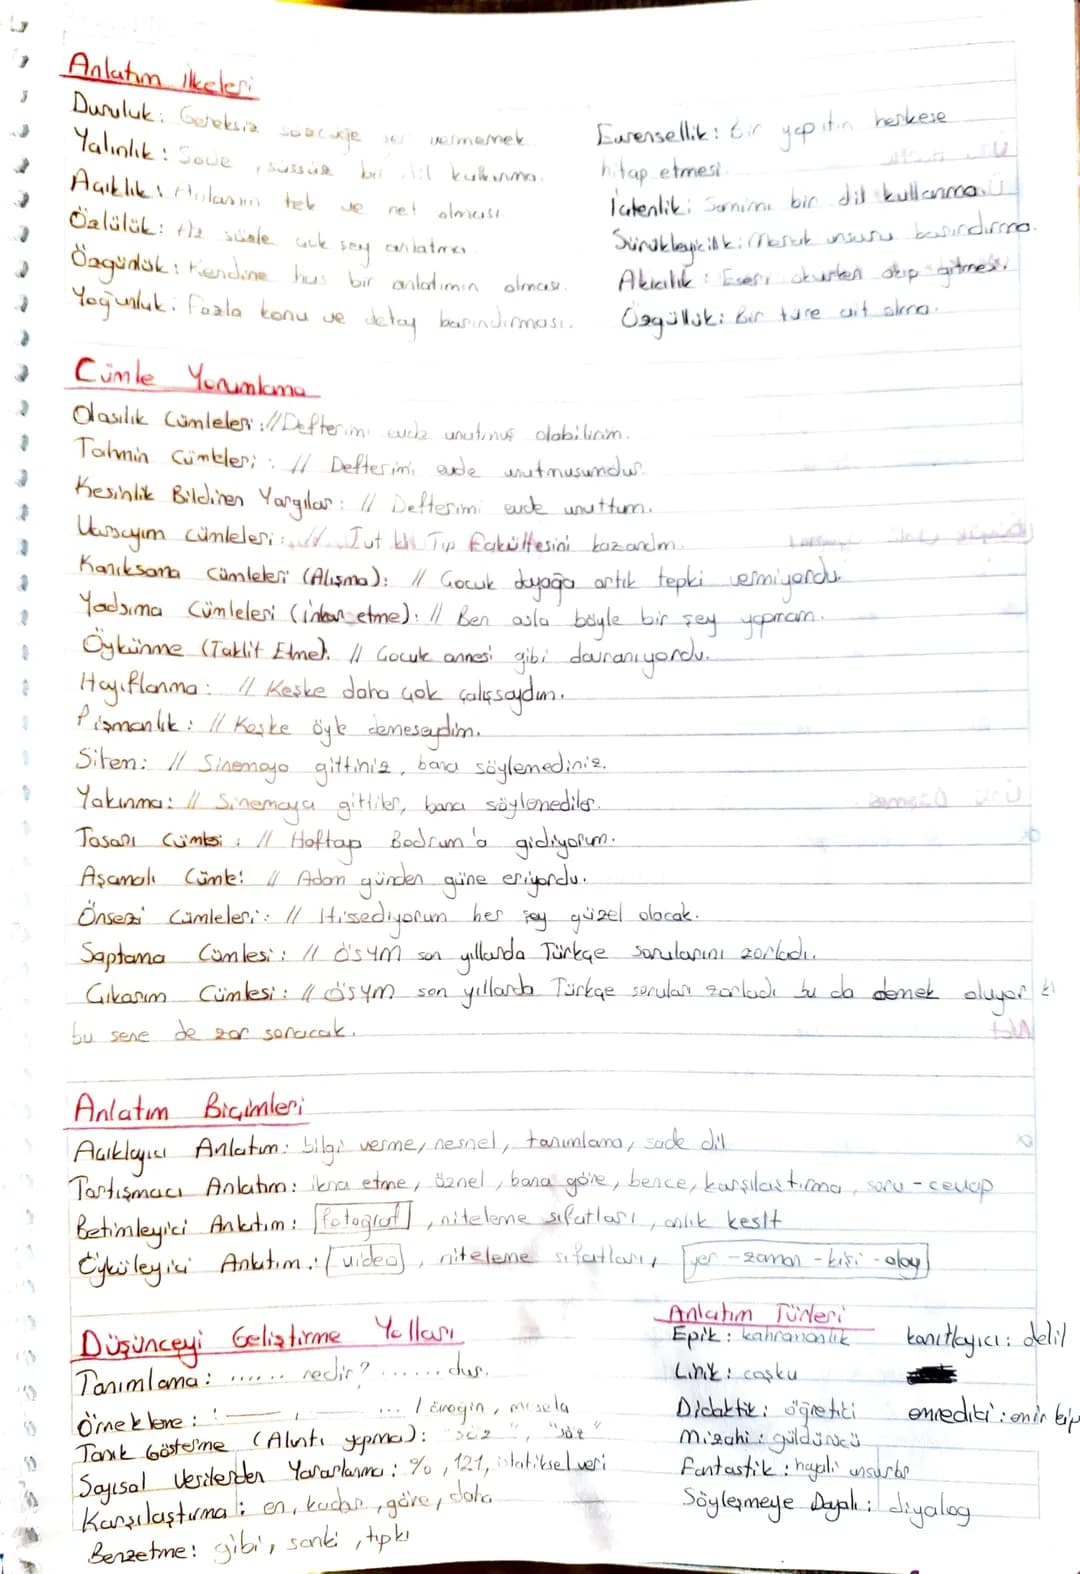 Anlatım ilkeleri
Duruluk: Gereksiz sözcüğe yer vermemek.
Yalınlık: Sade, süssüz bir dil kullanma.
Açıklık: Anlamın tek ve net olması.
Özlülük: Az sözle çok şey anlatma.
Özgünlük: Kendine has bir anlatımın olması.
Yoğunluk: Fazla konu ve detay barındırması.
Evrensellik: Bir yapıtın herkese
hitap etmesi.
İçtenlik: Samimi bir dil kullanma.
Sürükleyicilik: Merak unsuru barındırma.
Akıcılık: Eseri okurken akıp gitmesi.
Özgüllük: Bir türe ait olma.
Cümle Yorumlama
Olasılık Cümleleri: // Defterimi evde unutmuş olabilirim.
Tahmin Cümleleri: // Defterimi evde unutmuşumdur.
Kesinlik Bildiren Yargılar: // Defterimi evde unuttum.
Varsayım cümleleri: // Tut ki Tıp Fakültesini kazandım.
Kanıksama cümleleri (Alışma): // Çocuk dayağa artık tepki vermiyordu.
Yadsıma Cümleleri (inkar etme): // Ben asla böyle bir şey yapmam.
Öykünme (Taklit Etme): // Çocuk annesi gibi davranıyordu.
Hayıflanma: // Keşke daha çok çalışsaydım.
Pişmanlık: // Keşke öyle demeseydim.
Sitem: // Sinemaya gittiniz, bana söylemediniz.
Yakınma: // Sinemaya gittiler, bana söylemediler.
Tasarı Cümlesi: // Haftaya Bodrum'a gidiyorum.
Aşamalı Cümle: // Adam günden güne eriyordu.
Önsezi Cümleleri: // Hissediyorum her şey güzel olacak.
Saptama Cümlesi: // ÖSYM son yıllarda Türkçe sorularını zorladı.
Çıkarım Cümlesi: // ÖSYM son yıllarda Türkçe soruları zorladı bu da demek oluyor ki
bu sene de zor soracak.
Anlatım Biçimleri
Açıklayıcı Anlatım: bilgi verme, nesnel, tanımlama, sade dil
Tartışmacı Anlatım: ikna etme, öznel, bana göre, bence, karşılaştırma, soru-cevap
Betimleyici Anlatım: fotoğraf, niteleme sıfatları, anlık kesit
Öyküleyici Anlatım: video, niteleme sıfatları, yer-zaman-kişi-olay
Düşünceyi Geliştirme Yolları
Tanımlama: ...... nedir? ...... dur.
Örnekleme: ... / örneğin, mesela
Tanık Gösterme (Alıntı yapma): "söz", "söz"
Sayısal Verilerden Yararlanma: %, 121, istatiksel veri
Karşılaştırma: en, kadar, göre, daha
Benzetme: gibi, sanki, tıpkı
Anlatım Türleri
Epik: kahramanlık
Lirik: coşku
Didaktik: öğretici
Mizahi: güldürücü
Fantastik: hayali unsurlar
Söyleşmeye Dayalı: diyalog
kanıtlayıcı: delil
emredici: emir kip